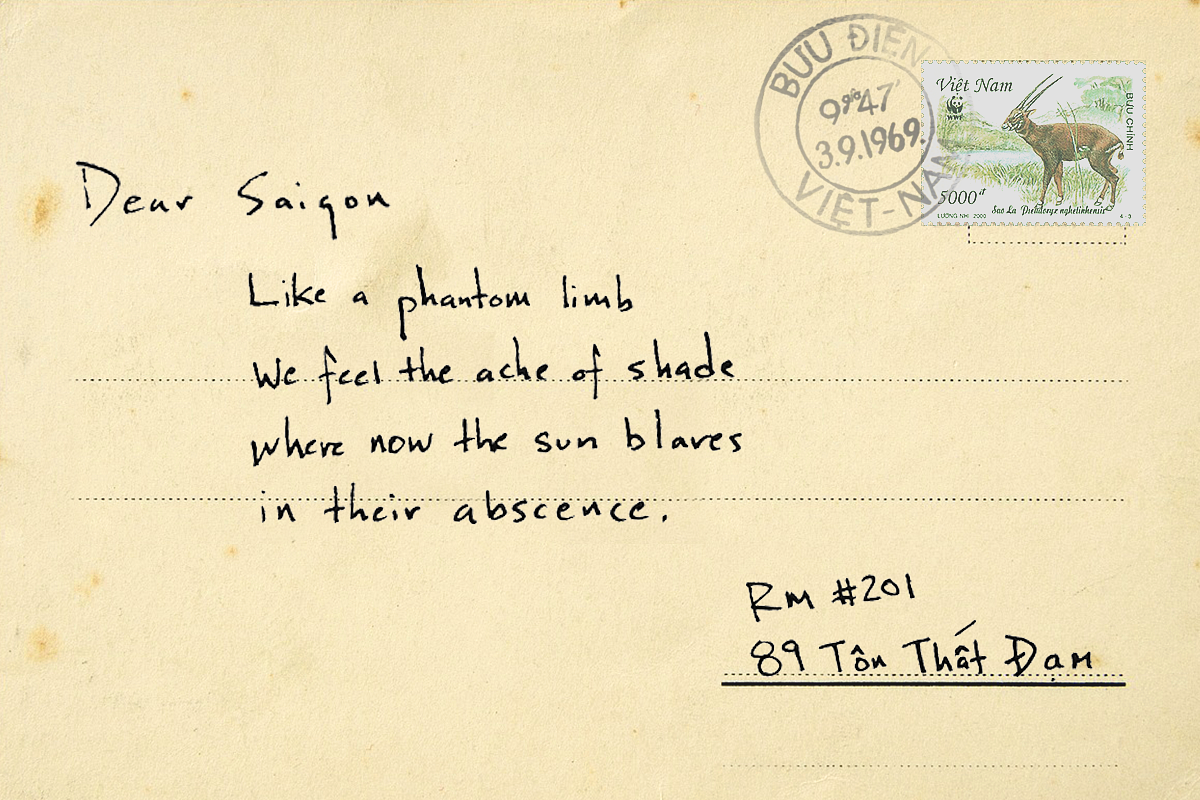 BƯU ĐIỆN
47
3.9.1969.
VIỆT-NAM
Việt Nam
WWF
BƯU CHÍNH
5000đ
Sao La
LƯƠNG NHI 2000
4-3
Dear Saigon
Like a phantom limb
We feel the ache of shade
where now the sun blares
in their abscence.
Rm #201
89 Tôn Thất Đạm